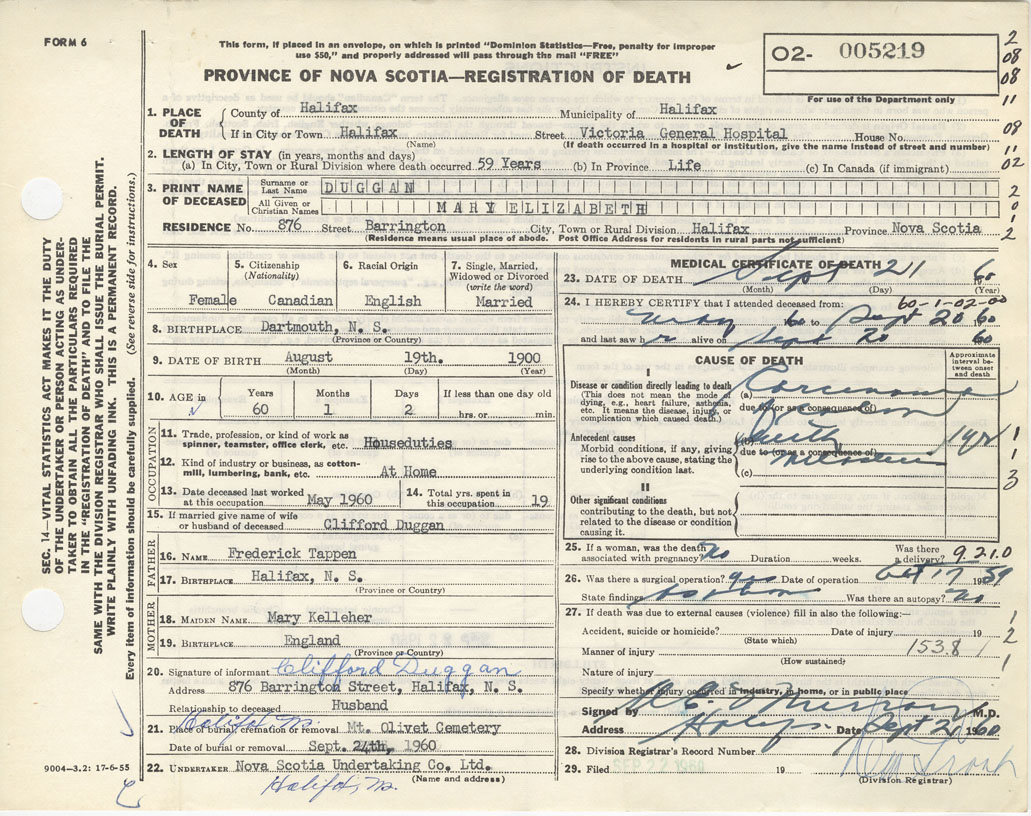 FORM 6
This form, if placed in an envelope, on which is printed "Dominion Statistics—Free, penalty for improper
use $50," and properly addressed will pass through the mail "FREE"
O2- 005219
For use of the Department only
PROVINCE OF NOVA SCOTIA—REGISTRATION OF DEATH
2
08
08
11
08
11
02
2
0
1
2
SEC. 14—VITAL STATISTICS ACT MAKES IT THE DUTY
OF THE UNDERTAKER OR PERSON ACTING AS UNDER-
TAKER TO OBTAIN ALL THE PARTICULARS REQUIRED
IN THE "REGISTRATION OF DEATH" AND TO FILE THE
SAME WITH THE DIVISION REGISTRAR WHO SHALL ISSUE THE BURIAL PERMIT.
WRITE PLAINLY WITH UNFADING INK. THIS IS A PERMANENT RECORD.
Every item of information should be carefully supplied. (See reverse side for instructions.)
1. PLACE OF DEATH
County of Halifax Municipality of Halifax
If in City or Town Halifax Street Victoria General Hospital House No.
(Name) (If death occurred in a hospital or institution, give the name instead of street and number)
2. LENGTH OF STAY (in years, months and days)
(a) In City, Town or Rural Division where death occurred 59 Years (b) In Province Life (c) In Canada (if immigrant)
3. PRINT NAME OF DECEASED
Surname or Last Name DUGGAN
All Given or Christian Names MARY ELIZABETH
RESIDENCE No. 876 Street Barrington City, Town or Rural Division Halifax Province Nova Scotia
(Residence means usual place of abode. Post Office Address for residents in rural parts not sufficient)
4. Sex Female
5. Citizenship (Nationality) Canadian
6. Racial Origin English
7. Single, Married, Widowed or Divorced (write the word) Married
8. BIRTHPLACE Dartmouth, N. S.
(Province or Country)
9. DATE OF BIRTH August 19th. 1900
(Month) (Day) (Year)
10. AGE in Years Months Days If less than one day old
60 1 2 hrs. or min.
OCCUPATION
11. Trade, profession, or kind of work as spinner, teamster, office clerk, etc. Houseduties
12. Kind of industry or business, as cotton-mill, lumbering, bank, etc. At Home
13. Date deceased last worked at this occupation May 1960
14. Total yrs. spent in this occupation 19
15. If married give name of wife or husband of deceased Clifford Duggan
FATHER
16. NAME Frederick Tappen
17. BIRTHPLACE Halifax, N. S.
(Province or Country)
MOTHER
18. MAIDEN NAME Mary Kelleher
19. BIRTHPLACE England
(Province or Country)
20. Signature of informant Clifford Duggan
Address 876 Barrington Street, Halifax, N. S.
Relationship to deceased Husband
Halifax N.S.
21. Place of burial, cremation or removal Mt. Olivet Cemetery
Date of burial or removal Sept. 24th, 1960
22. UNDERTAKER Nova Scotia Undertaking Co. Ltd.
(Name and address)
Halifax, N.S.
9004—3.2: 17-6-55
MEDICAL CERTIFICATE OF DEATH
23. DATE OF DEATH Sept 21 60
(Month) (Day) (Year)
24. I HEREBY CERTIFY that I attended deceased from: 60-1-02-00
May 60 to Sept 20 60
and last saw her alive on Sept 20 60
CAUSE OF DEATH
Approximate interval between onset and death
I
Disease or condition directly leading to death
(This does not mean the mode of dying, e.g., heart failure, asthenia, etc. It means the disease, injury, or complication which caused death.)
(a) Carcinoma
due to (or as a consequence of)
Antecedent causes
Morbid conditions, if any, giving rise to the above cause, stating the underlying condition last.
(b) with 1 yr
due to (or as a consequence of)
(c)
1
1
3
II
Other significant conditions
contributing to the death, but not related to the disease or condition causing it.
25. If a woman, was the death associated with pregnancy? no Duration weeks. Was there a delivery?
9210
26. Was there a surgical operation? yes Date of operation Oct 17 1959
State findings Was there an autopsy? no
27. If death was due to external causes (violence) fill in also the following:—
Accident, suicide or homicide? Date of injury 19
(State which)
Manner of injury 153.8
(How sustained)
Nature of injury
1
2
1
Specify whether injury occurred in industry, in home, or in public place
Signed by M.D.
Address Date Sept 21 1960
28. Division Registrar's Record Number
29. Filed SEP 22 1960 19
(Division Registrar)